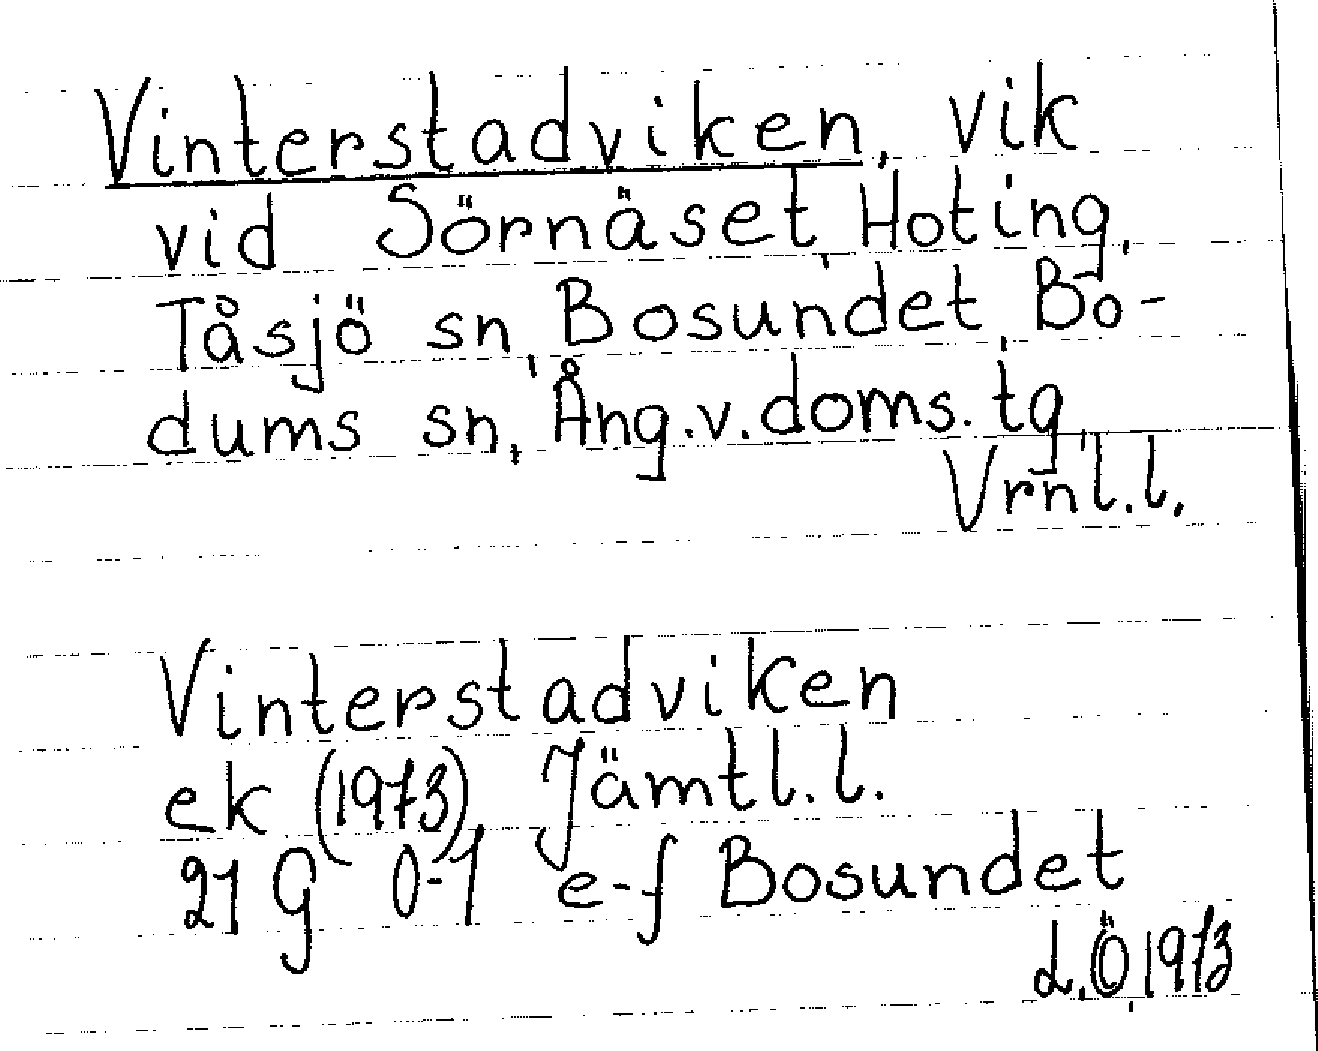 Vinterstadviken, vik
vid Sörnäset, Hoting,
Tåsjö sn, Bosundet, Bo-
dums sn, Ång.v.doms.tg,
Vrnl.l.
Vinterstadviken
ek (1973), Jämtl.l.
21 G 0-1 e-f Bosundet
L.Ö,1973